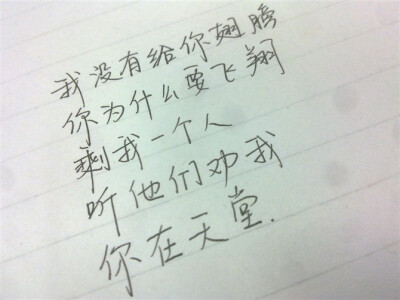 我没有给你翅膀
你为什么要飞翔
剩我一个人
听他们劝我
你在天堂.